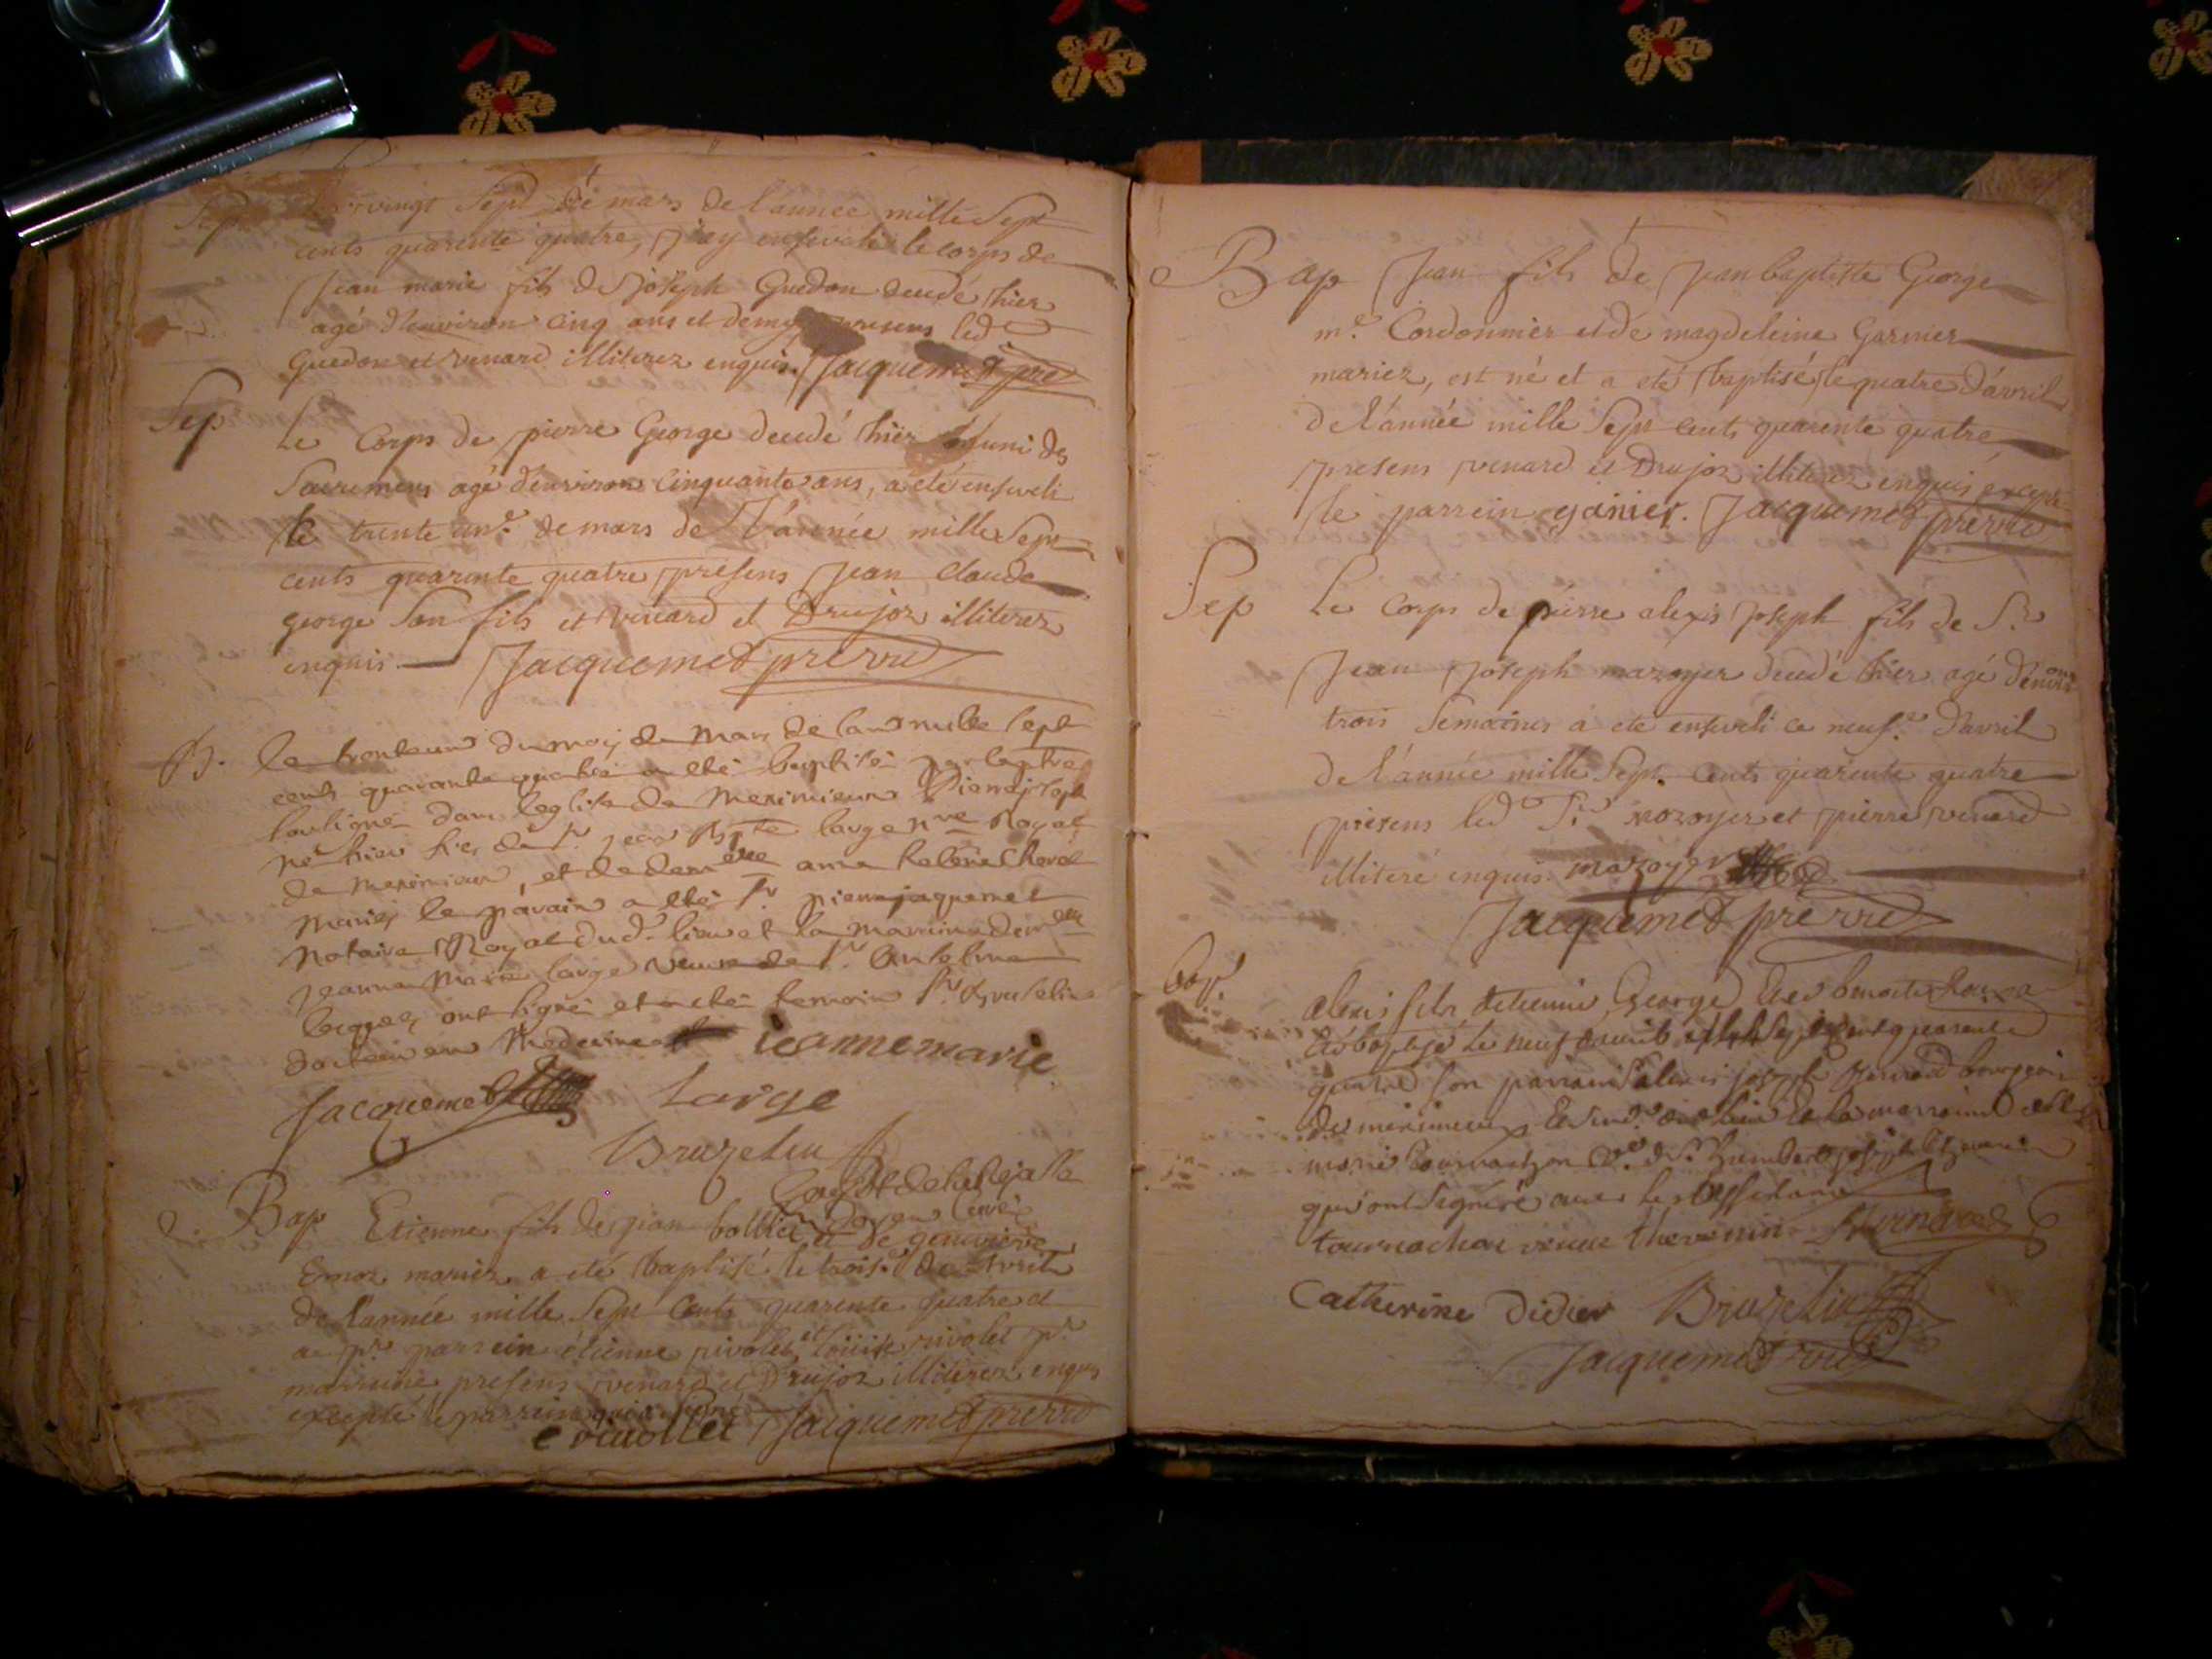 Sep
vingt Sept de mars de l'année mille Sept
cents quarente quatre, j'ay enseveli le corps de
Jean marie fils de Joseph Guedon decedé hier
agé d'environ cinq ans et demy presens led
Guedon et venard illiterez enquis. Jacquemet pre
Sep
Le Corps de pierre George decedé hier muni des
Sacremens agé d'environ Cinquante ans, a eté enseveli
le trente un.e de mars de l'année mille Sept
cents quarente quatre presens Jean Claude
george Son fils et venard et Drujon illiterez
enquis. Jacquemet pre vic
B. le trenteun du mois de Mars de lan mille sept
cents quarante quatre a eté baptisé par le ptre
soubsigné dans leglise de Meximieux Pierre joseph
né hier fils de Sr jean Bte large nre Royal
de Meximieux, et de demelle
Mariez le parain a eté Sr pierre jaquemet
notaire Royal dud. lieu et la Marraine demelle
jeanne Marie large veuve de Sr Antelme
lesquels ont signé et a eté temoin Sr bruzelin
docteur en Medecine
jeannemarie
Jacquemet
Large
Bruzelin
Bap Etienne fils de jean bollier et de genevieve
mariez a eté baptisé le trois.e de Avril
de l'année mille Sept Cents quarente quatre et
a pr. parrein étienne rivolet et rivolet pr.
marreine presens venard et Drujon illiterez enquis
excepté le parrein
e rivollet Jacquemet pre vic
Bap Jean fils de Jean baptiste George
m.e Cordonnier et de magdeleine Garnier
mariez, est né et a eté baptisé le quatre d'avril
de l'année mille Sept cents quarente quatre
presens venard et Drujon illiterez enquis excepté
le parrein ganier. Jacquemet pre vic
Sep Le Corps de pierre alexis Joseph fils de Sr
Jean Joseph mazoyer decedé hier agé d'environ
trois Semaines a eté enseveli ce neuf.e d'avril
de l'année mille Sept. cents quarente quatre
presens led Sr. mazoyer et pierre venard
illiteré enquis. mazoyer
Jacquemet pre vic
bap.
alexis fils detienne George et de benoite
a eté baptisé le neuf d'avril mil Sept cent quarente
quatre son parrain alexis joseph bourgeois
de meximieux la marraine
marie tournachon
qui ont signé avec les
tournachon veuve thevenin
Catherine Didier Bruzelin
Jacquemet vic